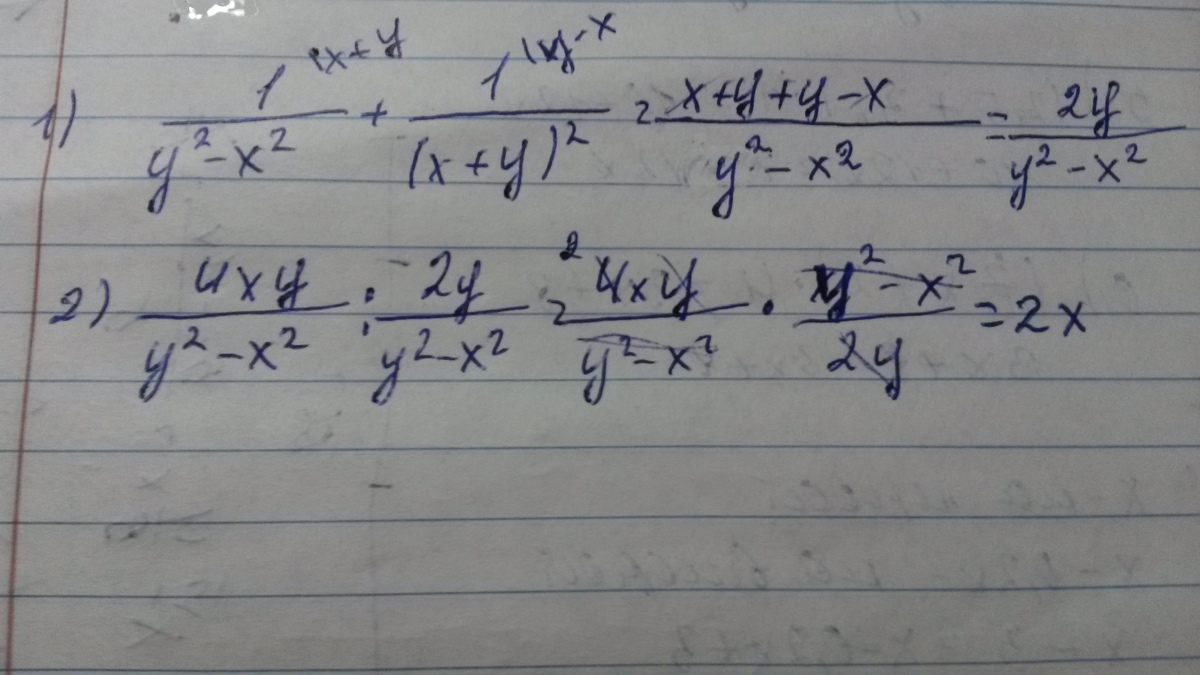 1) 1/(y²-x²) ^(x+y + 1/(x+y)² ^(y-x = (x+y+y-x)/(y²-x²) = 2y/(y²-x²)
2) 4xy/(y²-x²) : 2y/(y²-x²) = ²4xy/(y²-x²) · (y²-x²)/2y = 2x